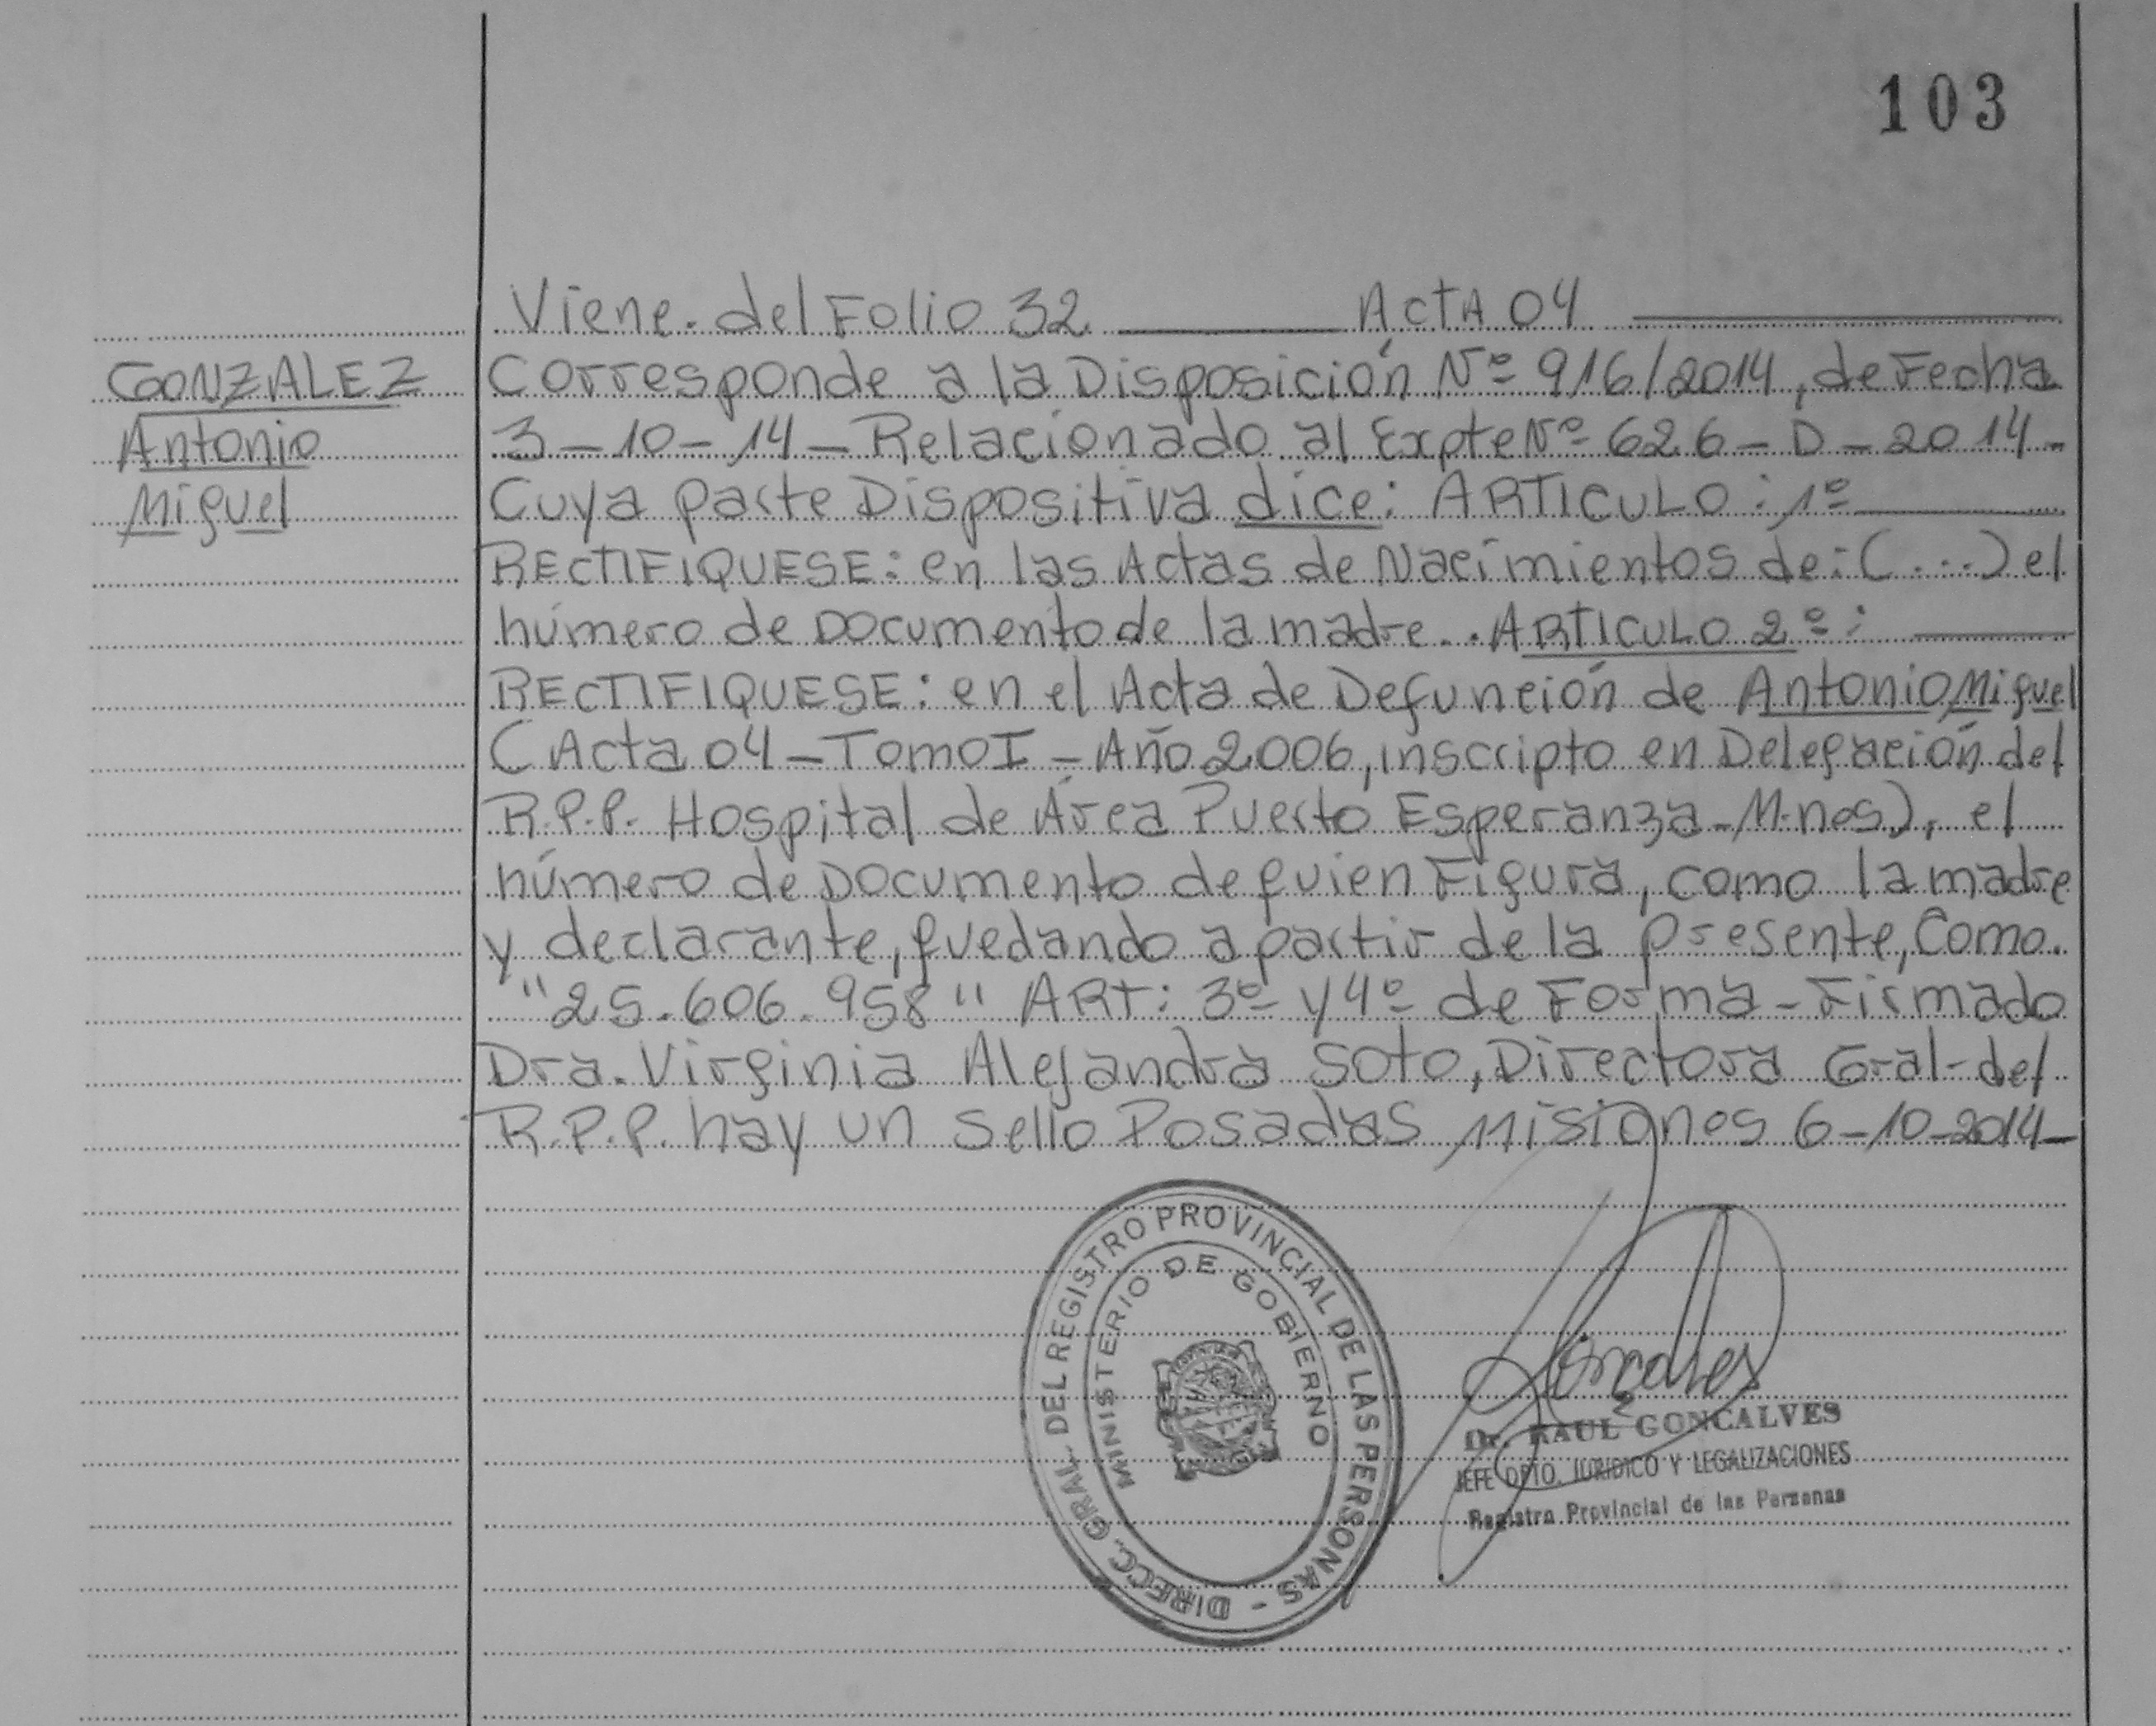 103
Viene. del Folio 32 ——— Acta 04 ———
GONZALEZ
Antonio
Miguel
Corresponde a la Disposición Nº 916/2014, de Fecha
3-10-14- Relacionado al Expte Nº 626-D-2014-
Cuya parte Dispositiva dice: ARTICULO: 1º ———
RECTIFIQUESE: en las Actas de Nacimientos de: (...) el
número de Documento de la madre.. ARTICULO 2º: ———
RECTIFIQUESE: en el Acta de Defunción de Antonio Miguel
(Acta 04-Tomo I - Año 2006, inscripto en Delegación del
R.P.P. Hospital de Área Puerto Esperanza-M.nes), el
número de Documento de quien Figura, como la madre
y declarante, quedando a partir de la presente, Como.
"25.606.958" ART: 3º y 4º de Forma - Firmado
Dra. Virginia Alejandra Soto, Directora Gral-del
R.P.P. hay un sello Posadas Misiones 6-10-2014-
DIRECC. GRAL. DEL REGISTRO PROVINCIAL DE LAS PERSONAS -
MINISTERIO DE GOBIERNO
Dr. RAUL GONCALVES
JEFE DPTO. JURIDICO Y LEGALIZACIONES
Registro Provincial de las Personas